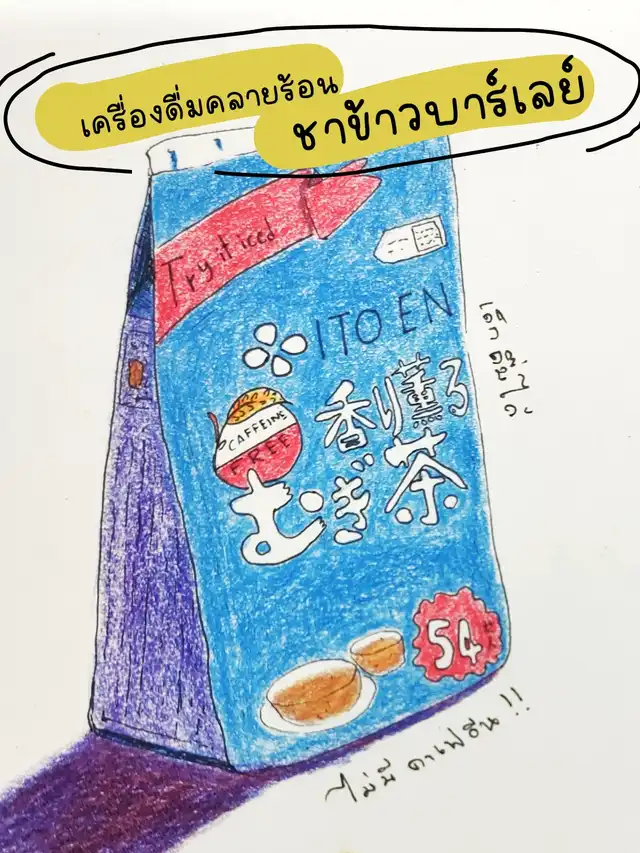 เครื่องดื่มคลายร้อน
ชาข้าวบาร์เลย์
Try it iced
ITO EN
香り薫る
むぎ茶
CAFFEINE
FREE
54
เด็กดื่มได้
ไม่มีคาเฟอีน!!